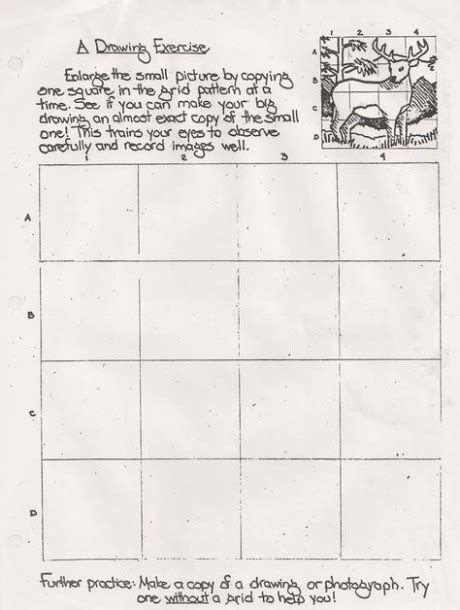 A Drawing Exercise
Enlarge the small picture by copying
one square in the grid pattern at a
time. See if you can make your big
drawing an almost exact copy of the small
one! This trains your eyes to observe
carefully and record images well.
1 2 3 4
A
B
C
D
1 2 3 4
A
B
C
D
Further practice: Make a copy of a drawing or photograph. Try
one without a grid to help you!